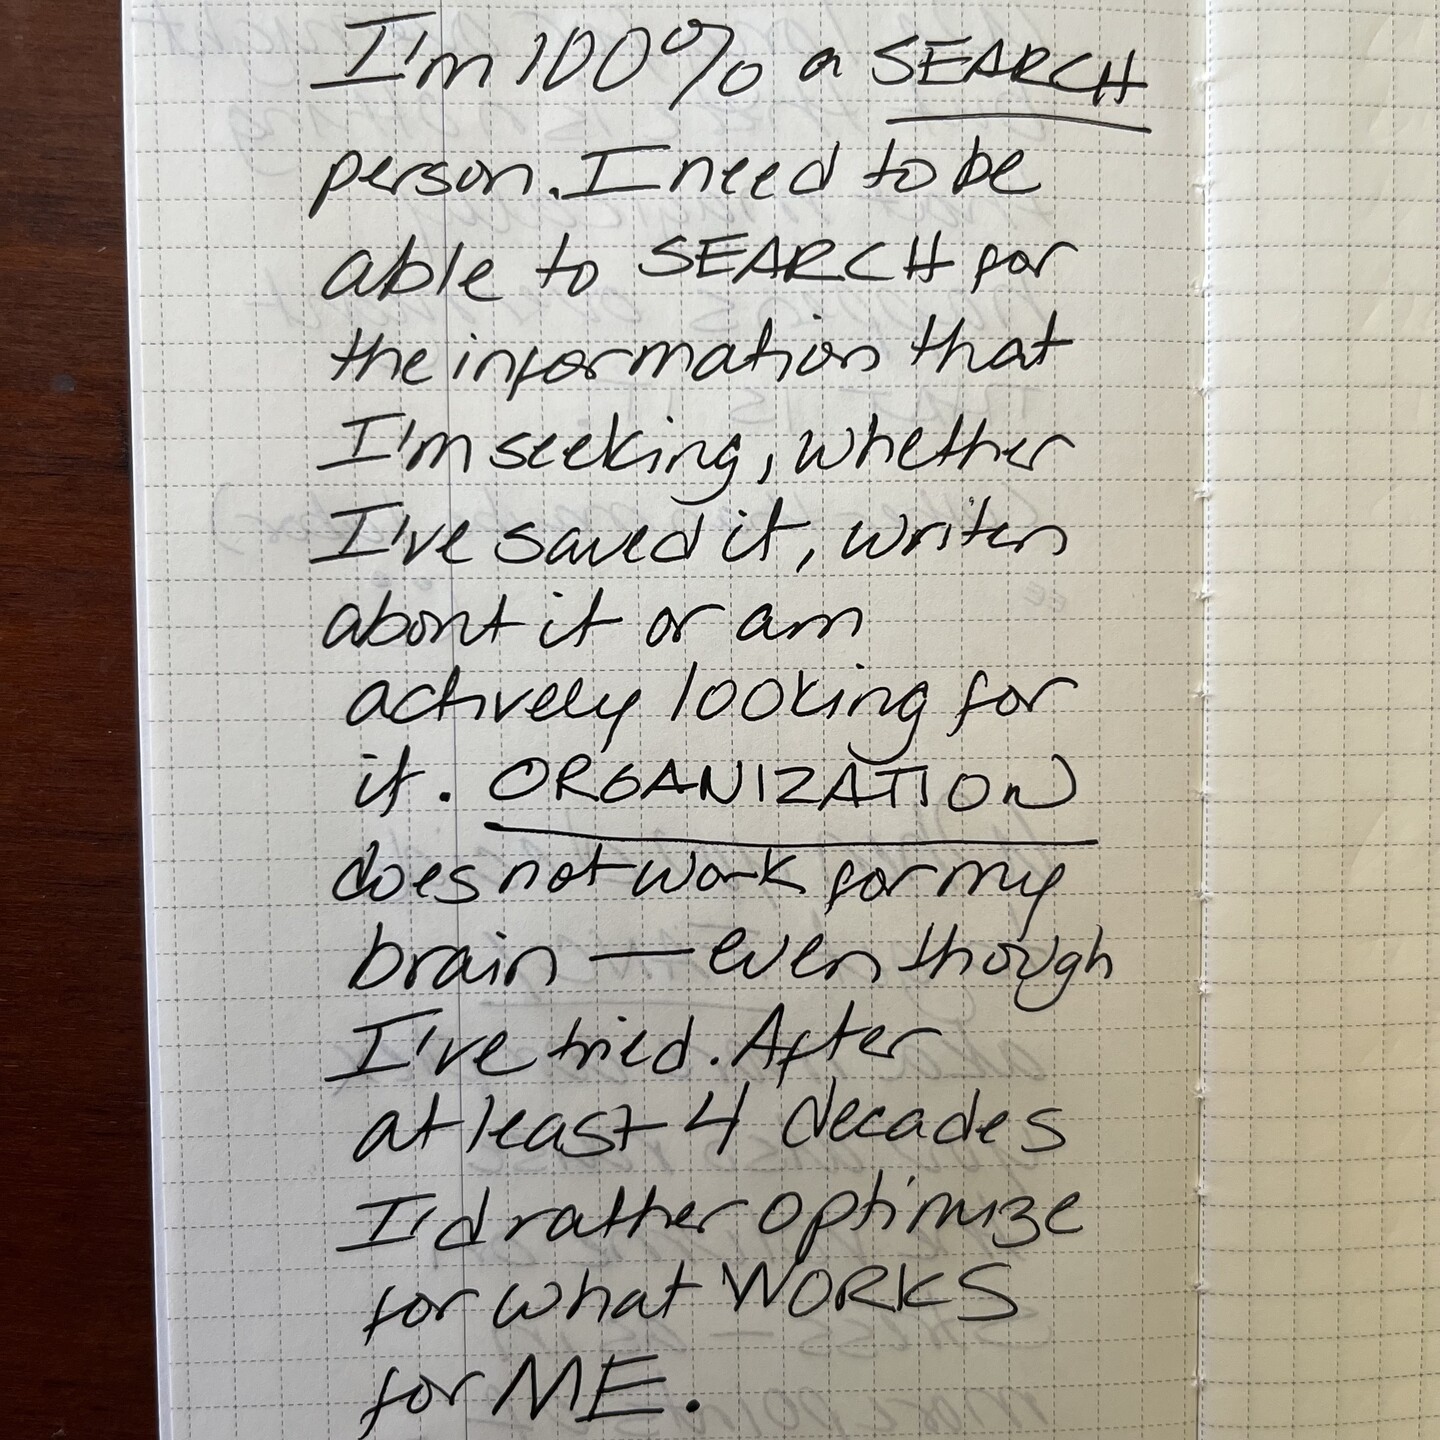 I'm 100% a SEARCH
person. I need to be
able to SEARCH for
the information that
I'm seeking, whether
I've saved it, writen
about it or am
actively looking for
it. ORGANIZATION
does not work for my
brain — even though
I've tried. After
at least 4 decades
I'd rather optimize
for what WORKS
for ME.